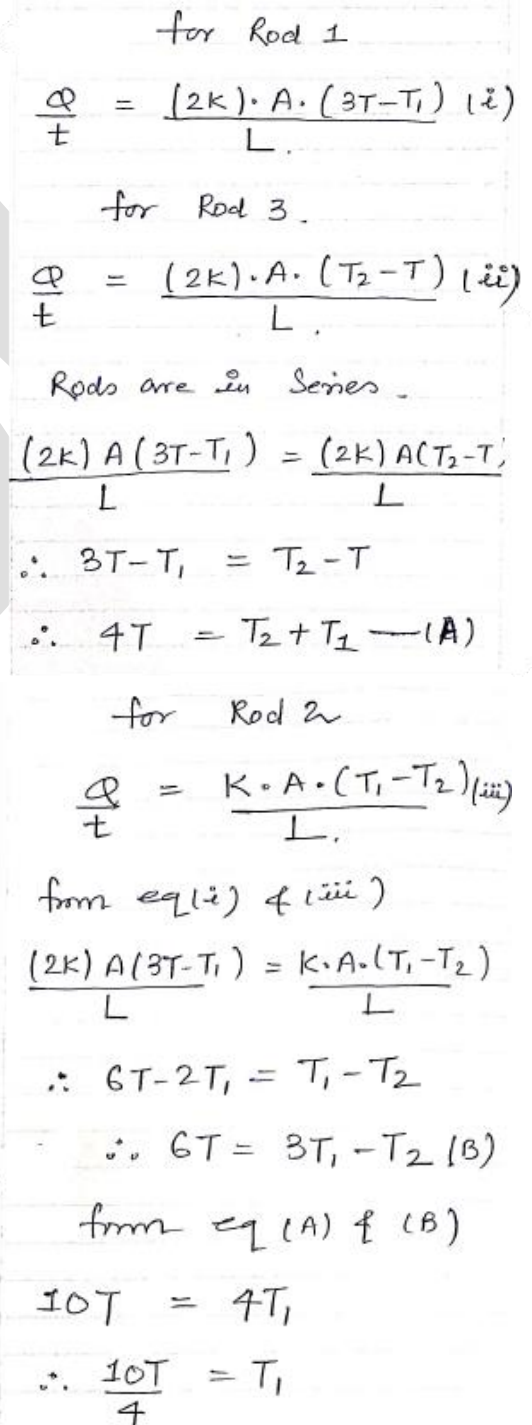 for Rod 1
Q/t = (2K). A. (3T-T₁)/L. (i)
for Rod 3.
Q/t = (2K). A. (T₂-T)/L. (ii)
Rods are in Series.
(2K) A (3T-T₁)/L = (2K) A(T₂-T)/L
∴ 3T-T₁ = T₂-T
∴ 4T = T₂+T₁ —(A)
for Rod 2
Q/t = K. A. (T₁-T₂)/L. (iii)
from eq(i) & (iii)
(2K) A(3T-T₁)/L = K.A.(T₁-T₂)/L
∴ 6T-2T₁ = T₁-T₂
∴ 6T = 3T₁-T₂ (B)
from eq (A) & (B)
10T = 4T₁
∴ 10T/4 = T₁